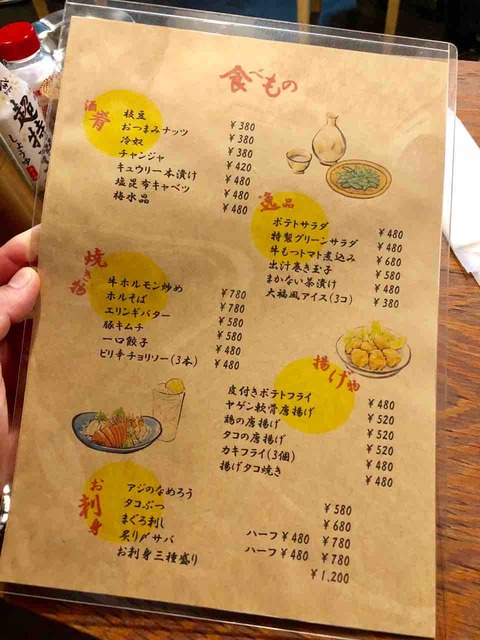 食べもの
酒肴
枝豆 ¥380
おつまみナッツ ¥380
冷奴 ¥380
チャンジャ ¥420
キュウリ一本漬け ¥480
塩昆布キャベツ ¥480
梅水晶 ¥480
逸品
ポテトサラダ ¥480
特製グリーンサラダ ¥480
牛もつトマト煮込み ¥680
出汁巻き玉子 ¥580
まかない茶漬け ¥480
大福風アイス(3コ) ¥380
焼き物
牛ホルモン炒め ¥780
ホルそば ¥780
エリンギバター ¥580
豚キムチ ¥580
一口餃子 ¥480
ピリ辛チョリソー(3本) ¥480
揚げや
皮付きポテトフライ ¥480
ヤゲン軟骨唐揚げ ¥520
鶏の唐揚げ ¥520
タコの唐揚げ ¥520
カキフライ(3個) ¥480
揚げタコ焼き ¥480
お刺身
アジのなめろう ¥580
タコぶつ ¥680
まぐろ刺し ハーフ¥480 ¥780
炙り〆サバ ハーフ¥480 ¥780
お刺身三種盛り ¥1,200
超特
しょうゆ